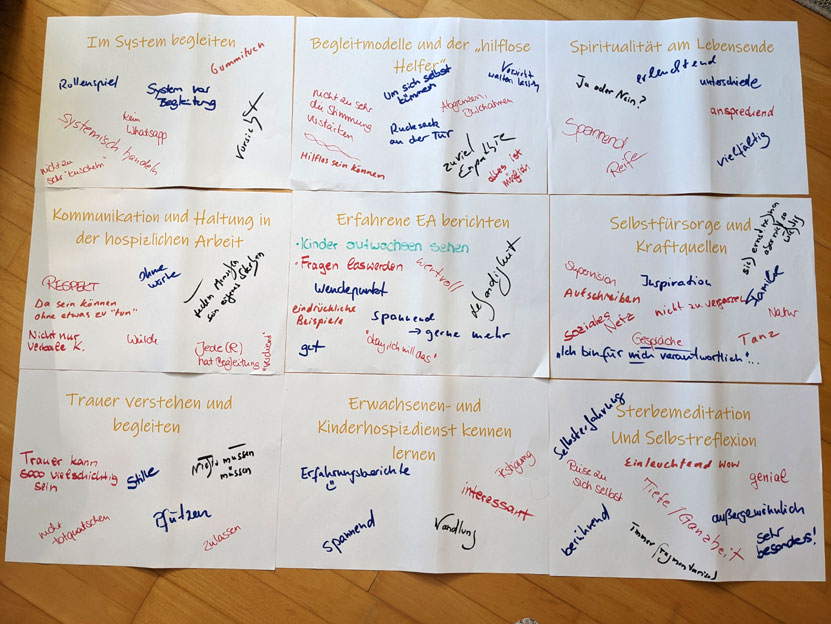 Im System begleiten
Gummituch
Rollenspiel
System vor
Begleitung
kein
Whatsapp
Systemisch handeln
Vorsicht
Begleitmodelle und der „hilflose
Helfer“
nicht zu sehr
die Stimmung
verstärken
Um sich selbst
kümmern
Vorsicht
walten lassen
Abgrenzen,
Rucksack
an der Tür
Hilflos sein können
zuviel
Empathie
alles ist
möglich
Spiritualität am Lebensende
erleuchtend
Ja oder Nein?
unterschiede
ansprechend
Spannend
Reife
vielfältig
Kommunikation und Haltung in
der hospizlichen Arbeit
RESPEKT
ohne
Worte
Da sein können
ohne etwas zu "tun"
jedem Menschen
sein eigenes Sterben
Nicht nur
verbale K.
Würde
Jede(R)
hat Begleitung
Erfahrene EA berichten
• Kinder aufwachsen sehen
• Fragen loswerden
wertvoll
Wendepunkt
eindrückliche
Beispiele
spannend
→ gerne mehr
gut
"okay ich will das"
Selbstfürsorge und
Kraftquellen
sich ernst nehmen
aber nicht zu
wichtig
Supervision
Inspiration
Aufschreiben
nicht zu vergessen
Familie
soziales
Netz
Natur
Gespräche
Tanz
„Ich bin für mich verantwortlich"...
Trauer verstehen und
begleiten
Trauer kann
sooo vielschichtig
sein
Stille
Nichts müssen
müssen
nicht
totquatschen
Pfützen
zulassen
Erwachsenen- und
Kinderhospizdienst kennen
lernen
Erfahrungsberichte
interessant
spannend
Wandlung
Sterbemeditation
Und Selbstreflexion
Selbsterfahrung
Einleuchtend WOW
Reise zu
sich selbst
genial
Tiefe / Ganzheit
außergewöhnlich
berührend
sehr
besonders!